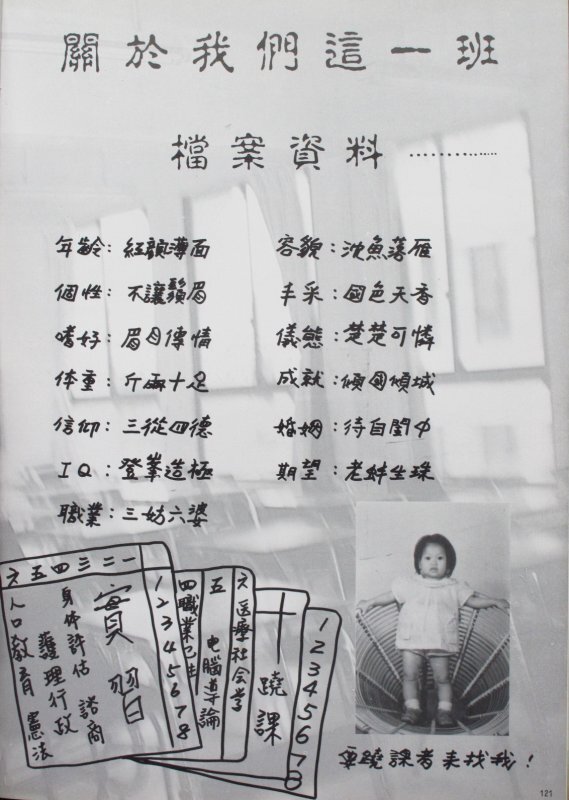 關於我們這一班
檔案資料............
年齡：紅顏薄面
個性：不讓鬚眉
嗜好：眉目傳情
体重：斤兩十足
信仰：三從四德
IQ：登峯造極
職業：三姑六婆
容貌：沈魚落雁
丰采：國色天香
儀態：楚楚可憐
成就：傾國傾城
婚姻：待自閨中
期望：老蚌生珠
六五四三二一
1 2 3 4 5 6 7 8
實習
諮商
身体評估
護理行政
人口教育 憲法
四職業衛生
五 电腦導論
六医療社会学
十
蹺課
1 2 3 4 5 6 7 8
蹺課者來找我！
121